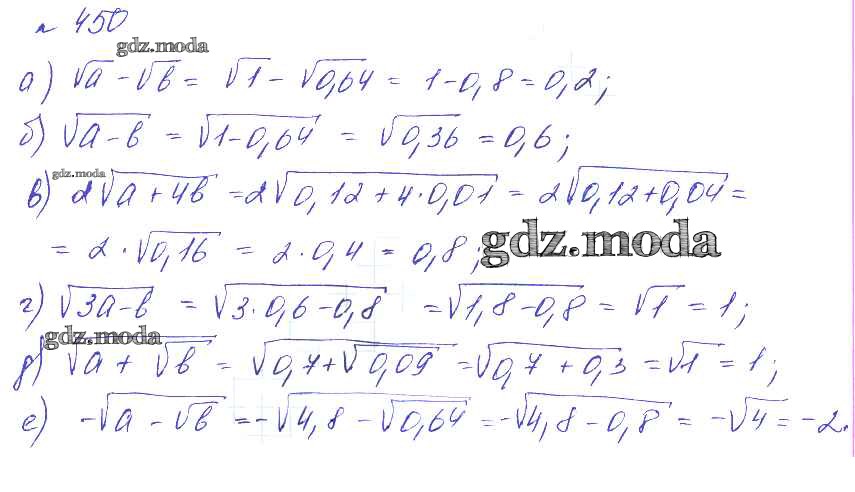 № 450
gdz.moda
а) √a - √b = √1 - √0,64 = 1-0,8 = 0,2;
б) √(a-b) = √(1-0,64) = √0,36 = 0,6;
gdz.moda
в) 2√(a+4b) = 2√(0,12+4·0,01) = 2√(0,12+0,04) =
= 2·√0,16 = 2·0,4 = 0,8;
gdz.moda
г) √(3a-b) = √(3·0,6-0,8) = √(1,8-0,8) = √1 = 1;
gdz.moda
д) √(a+√b) = √(0,7+√0,09) = √(0,7+0,3) = √1 = 1;
е) -√(a-√b) = -√(4,8-√0,64) = -√(4,8-0,8) = -√4 = -2.